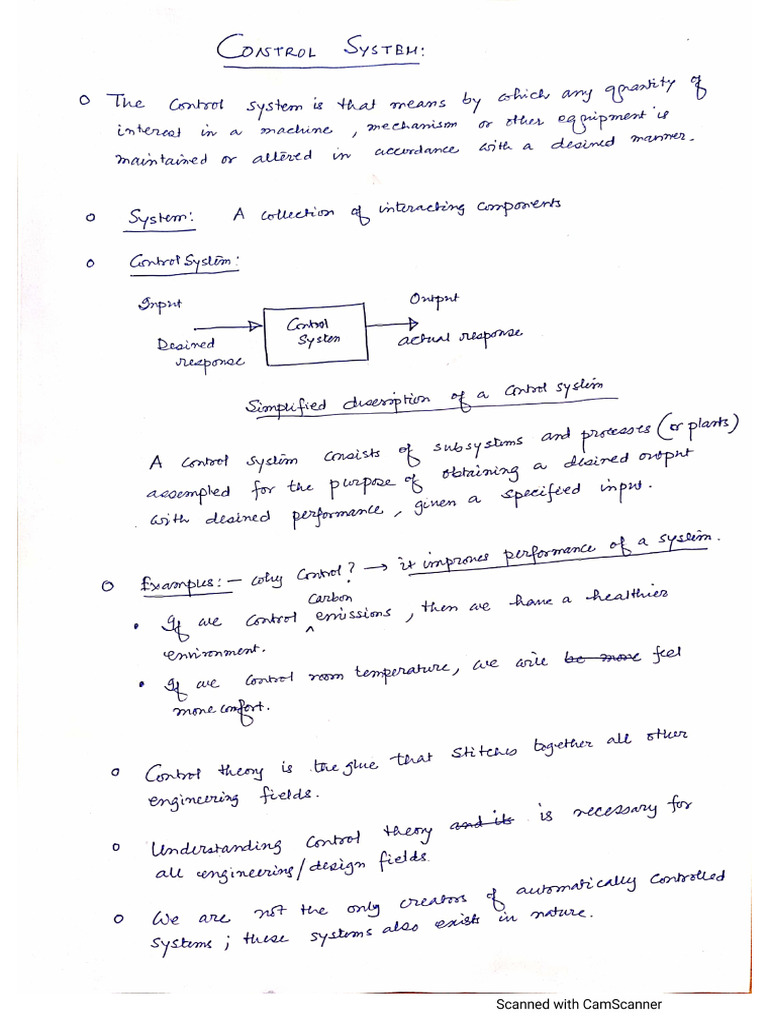 CONTROL SYSTEM:
o The control system is that means by which any quantity of
interest in a machine, mechanism or other equipment is
maintained or altered in accordance with a desired manner.
o System: A collection of interacting components
o Control System:
Input
Output
Control
System
Desired
response
actual response
Simplified description of a control system
A control system consists of subsystems and processes (or plants)
assempled for the purpose of obtaining a desired output
with desired performance, given a specified input.
o Examples: - Why control? → it improves performance of a system.
Carbon
• If we control ^ emissions, then we have a healthier
environment.
• If we control room temperature, we will be more feel
more comfort.
o Control theory is the glue that stitches together all other
engineering fields.
o Understanding control theory and its is necessary for
all engineering/design fields.
o We are not the only creators of automatically controlled
systems; these systems also exists in nature.
Scanned with CamScanner